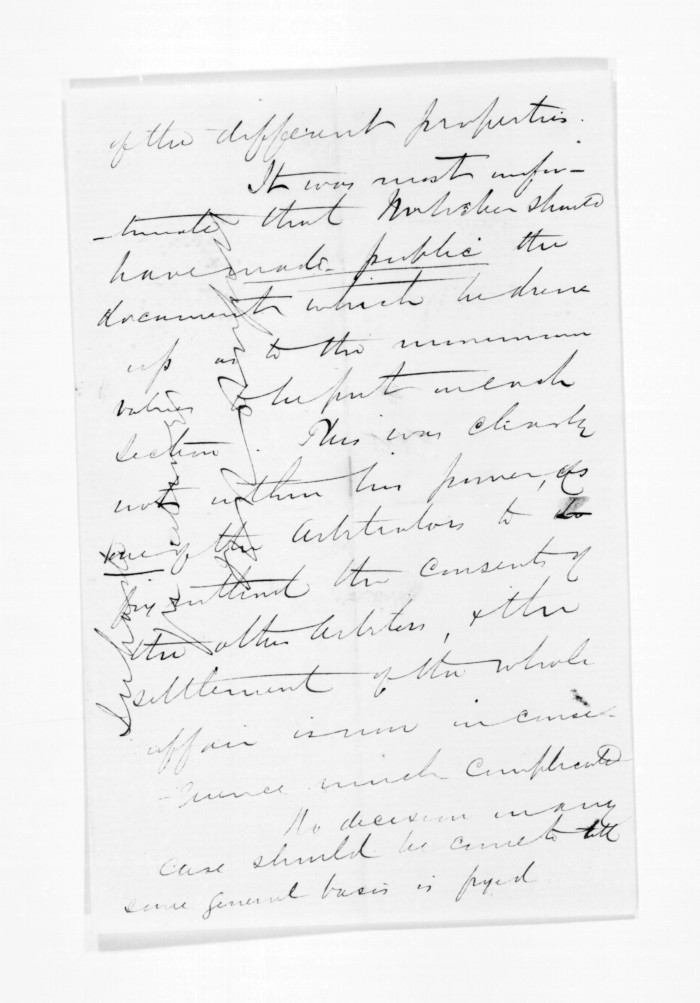 of the different properties.
It was most unfor-
-tunate that should
have made public the
documents which he drew
up as to the minimum
values to be put on each
section. This was clearly
not within his power, as
one of the Arbitrators to
fix without the consents of
the other Arbiters, & the
settlement of the whole
affair is now in conse-
-quence much complicated
No decision in any
case should be come to till
some general basis is fixed